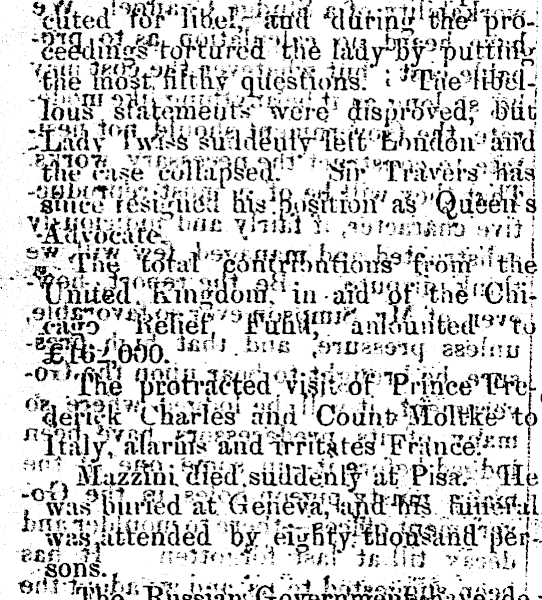 cuted for libel, and during the pro-
ceedings tortured the lady by putting
the most filthy questions. The libel-
lous statements were disproved, but
Lady Twiss suddenly left London and
the case collapsed. Sir Travers has
since resigned his position as Queen's
Advocate.
The total contributions from the
United Kingdom, in aid of the Chi-
cago Relief Fund, amounted to
The protracted visit of Prince Fre-
derick Charles and Count Moltke to
Italy, alarms and irritates France.
Mazzini died suddenly at Pisa. He
was buried at Geneva, and his funeral
was attended by eighty thousand per-
sons.
The Russian Government